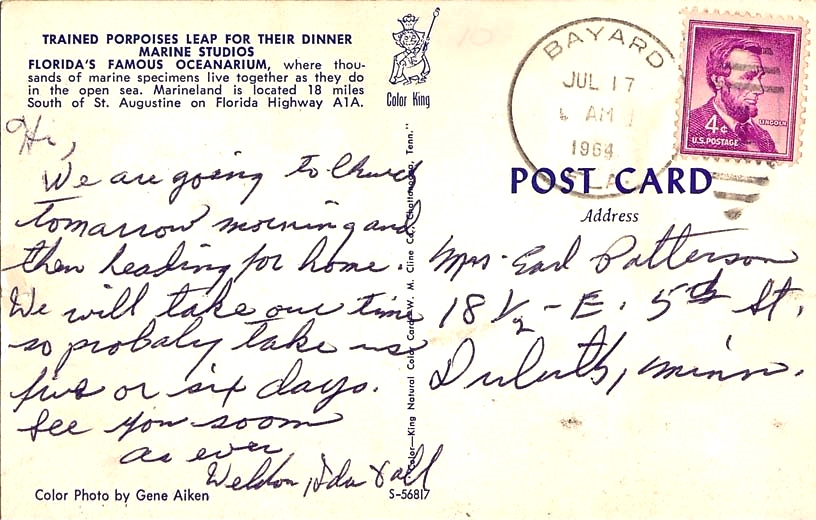 TRAINED PORPOISES LEAP FOR THEIR DINNER
MARINE STUDIOS
FLORIDA'S FAMOUS OCEANARIUM, where thou-
sands of marine specimens live together as they do
in the open sea. Marineland is located 18 miles
South of St. Augustine on Florida Highway A1A.
Color King
Hi,
We are going to Church
tomarrow morning and
then heading for home.
We will take our time
so probaly take us
five or six days.
See you soon
as ever
Weldon, Ida & all
Color Photo by Gene Aiken
Color—King Natural Color Card, W. M. Cline Co., Chattanooga, Tenn."
S-56817
BAYARD
JUL 17
AM
1964
FLA
LINCOLN
4¢
U.S. POSTAGE
POST CARD
Address
Mrs. Earl Patterson
18 1/2 - E. 5th St.
Duluth, Minn.